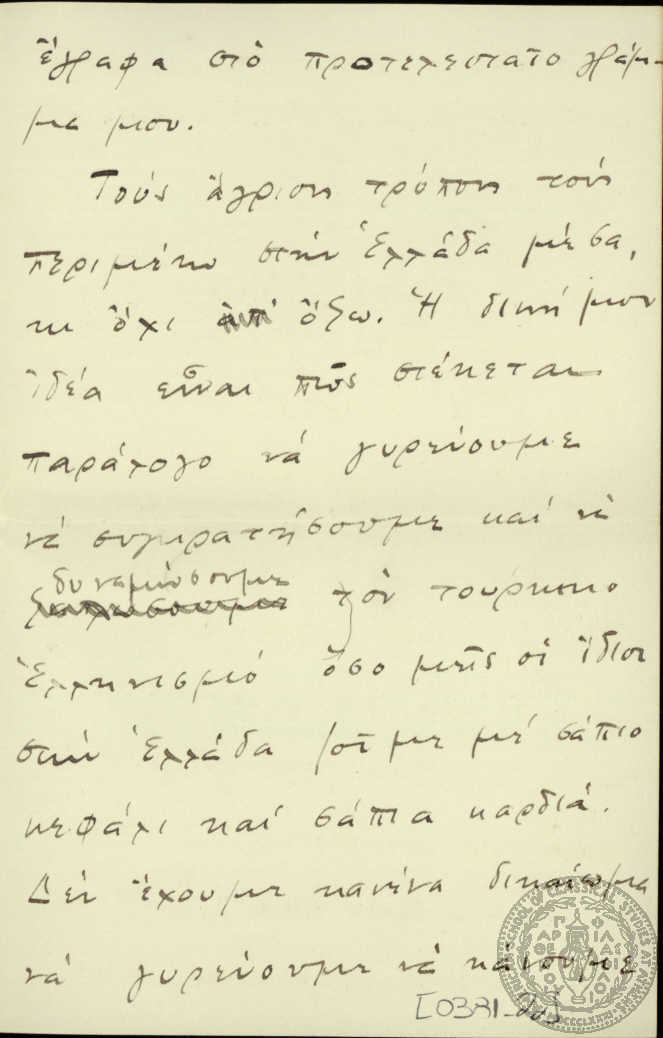 ἔγραφα στὸ προτελευταῖο γράμ-
μα μου.
Τοὺς ἄγριους τρόπους τοὺς
περιμένω στὴν Ἑλλάδα μέσα,
κι ὄχι ἀπ' ὄξω. Ἡ δική μου
ἰδέα εἶναι πὼς στέκεται
παράλογο νὰ γυρεύουμε
νὰ συγκρατήσουμε καὶ νὰ
δυναμώσουμε τὸν τουρκικο
Ἑλληνισμό ὅσο μεῖς οἱ ἴδιοι
στὴν Ἑλλάδα ζοῦμε μὲ σάπιο
κεφάλι καὶ σάπια καρδιά.
Δὲν ἔχουμε κανένα δικαίωμα
νὰ γυρεύουμε νὰ κάνουμε